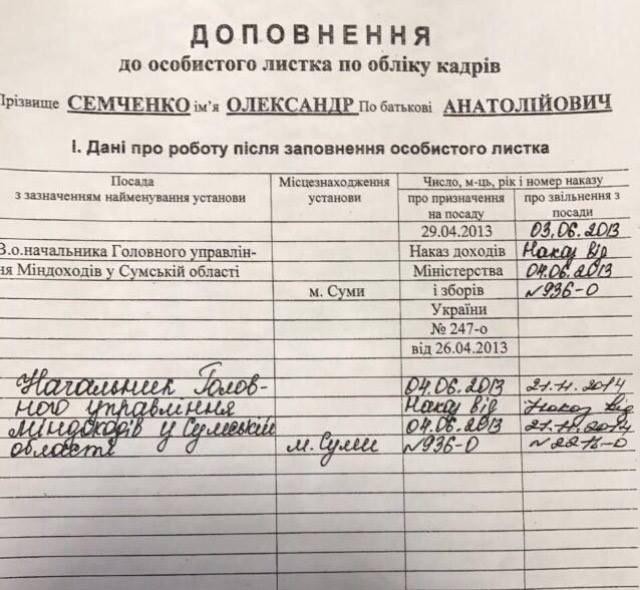 ДОПОВНЕННЯ
до особистого листка по обліку кадрів
Прізвище СЕМЧЕНКО ім'я ОЛЕКСАНДР По батькові АНАТОЛІЙОВИЧ
І. Дані про роботу після заповнення особистого листка
Посада
з зазначенням найменування установи
Місцезнаходження
установи
Число, м-ць, рік і номер наказу
про призначення
на посаду
про звільнення з
посади
29.04.2013 03.06.2013
В.о.начальника Головного управлін- Наказ доходів Наказ від
ня Міндоходів у Сумській області Міністерства 04.06.2013
м. Суми і зборів №936-О
України
№ 247-о
від 26.04.2013
Начальник Голов- 04.06.2013 21.11.2014
ного управління Наказ від Наказ від
Міндоходів у Сумській 04.06.2013 21.11.2014
області м. Суми №936-О